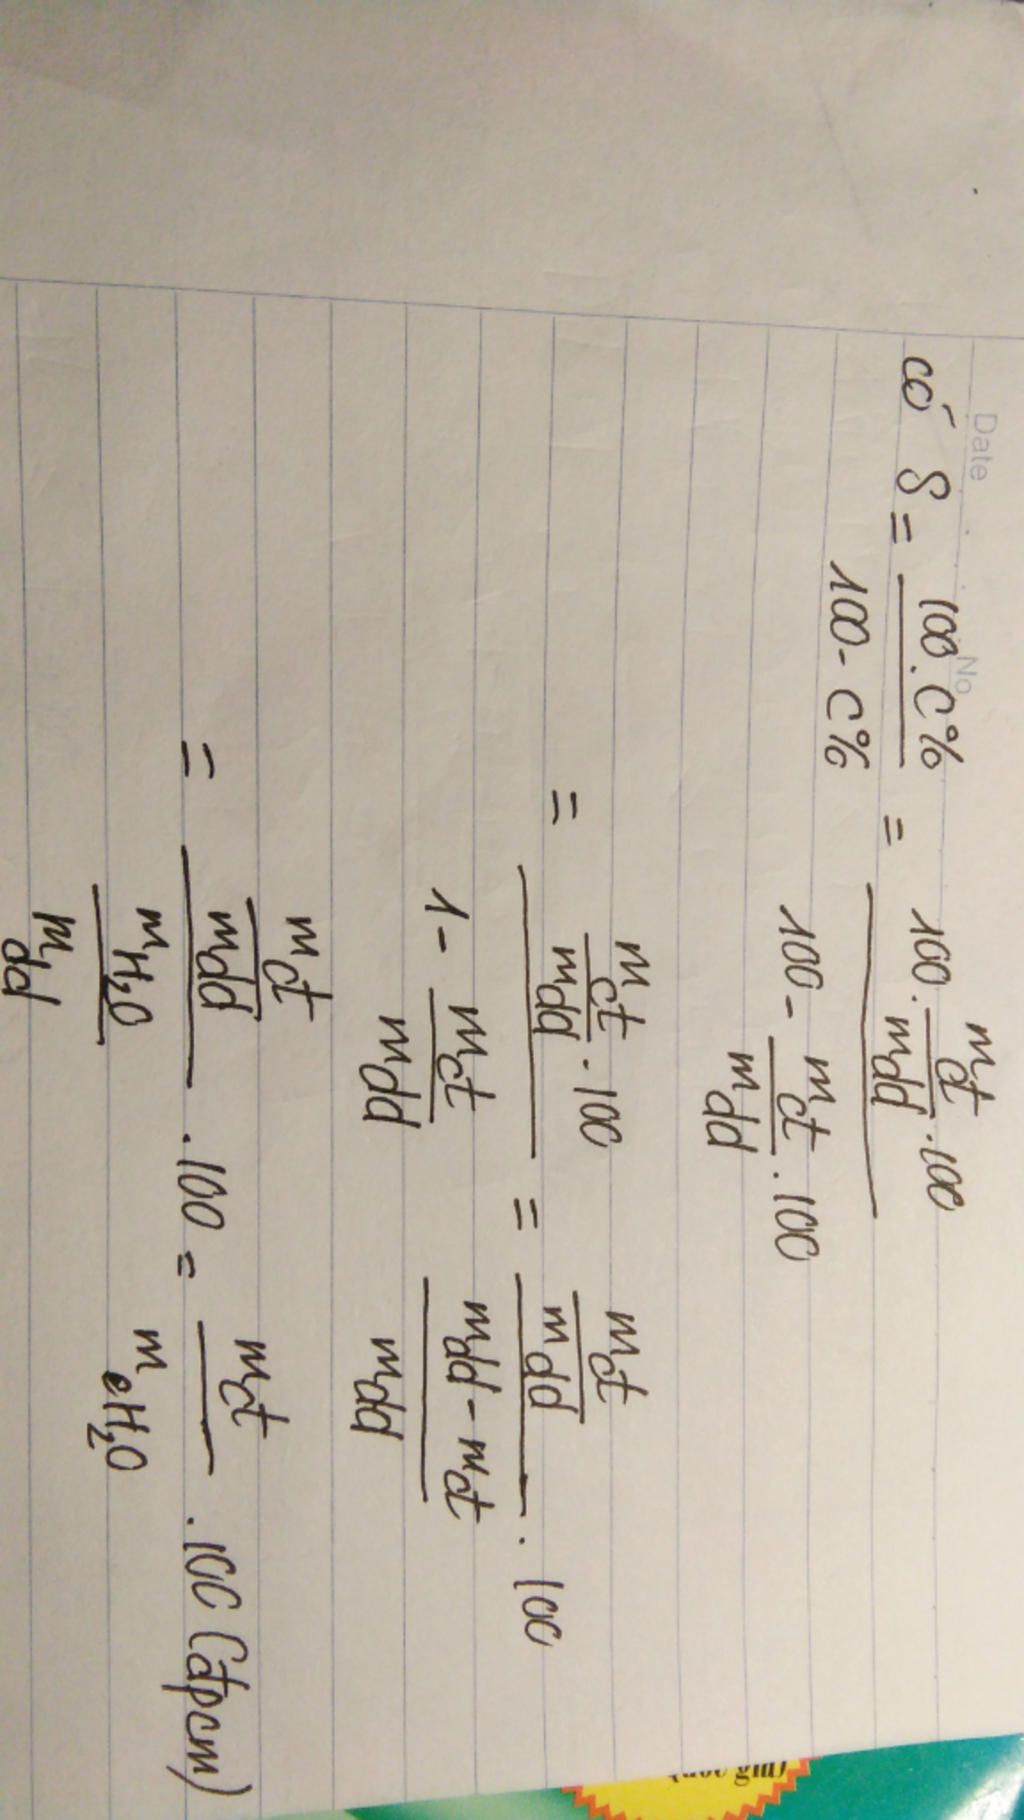 Date No
có S = 100.C% / 100-C% = 100. mct/mdd .100 / 100 - mct/mdd .100
= mct/mdd .100 / 1 - mct/mdd = mct/mdd / mdd-mct/mdd . 100
= mct/mdd / mH₂O/mdd .100 = mct / mH₂O .100 (đpcm)